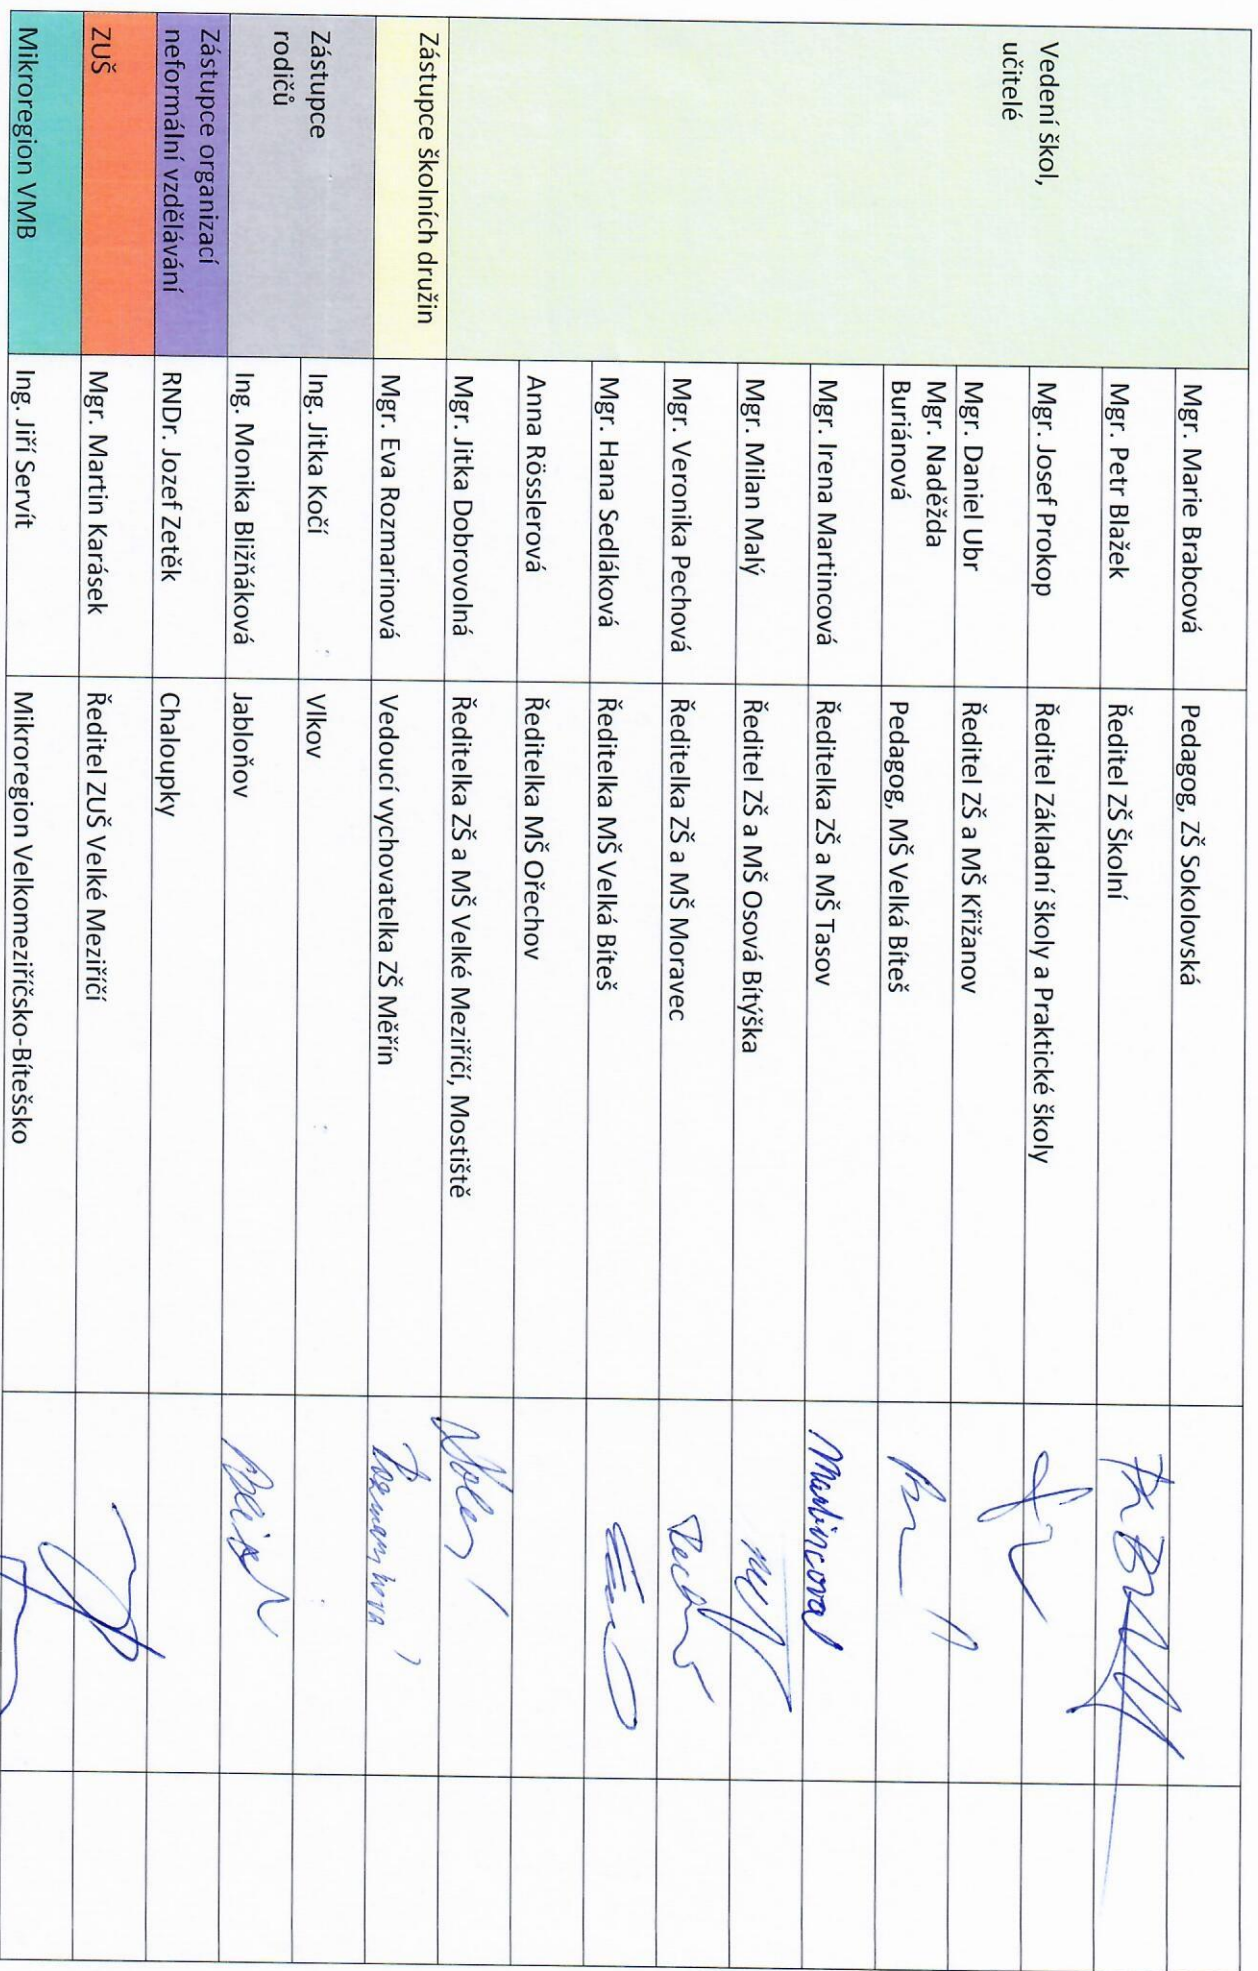 Vedení škol,
učitelé
Mgr. Marie Brabcová Pedagog, ZŠ Sokolovská
Mgr. Petr Blažek Ředitel ZŠ Školní
Mgr. Josef Prokop Ředitel Základní školy a Praktické školy
Mgr. Daniel Ubr Ředitel ZŠ a MŠ Křižanov
Mgr. Naděžda
Buriánová Pedagog, MŠ Velká Bíteš
Mgr. Irena Martincová Ředitelka ZŠ a MŠ Tasov Martincová
Mgr. Milan Malý Ředitel ZŠ a MŠ Osová Bítýška
Mgr. Veronika Pechová Ředitelka ZŠ a MŠ Moravec
Mgr. Hana Sedláková Ředitelka MŠ Velká Bíteš
Anna Rösslerová Ředitelka MŠ Ořechov
Mgr. Jitka Dobrovolná Ředitelka ZŠ a MŠ Velké Meziříčí, Mostiště
Zástupce školních družin Mgr. Eva Rozmarinová Vedoucí vychovatelka ZŠ Měřín
Zástupce
rodičů
Ing. Jitka Kočí Vlkov
Ing. Monika Bližňáková Jabloňov
Zástupce organizací
neformální vzdělávání
RNDr. Jozef Zetěk Chaloupky
ZUŠ Mgr. Martin Karásek Ředitel ZUŠ Velké Meziříčí
Mikroregion VMB Ing. Jiří Servít Mikroregion Velkomeziříčsko-Bítešsko